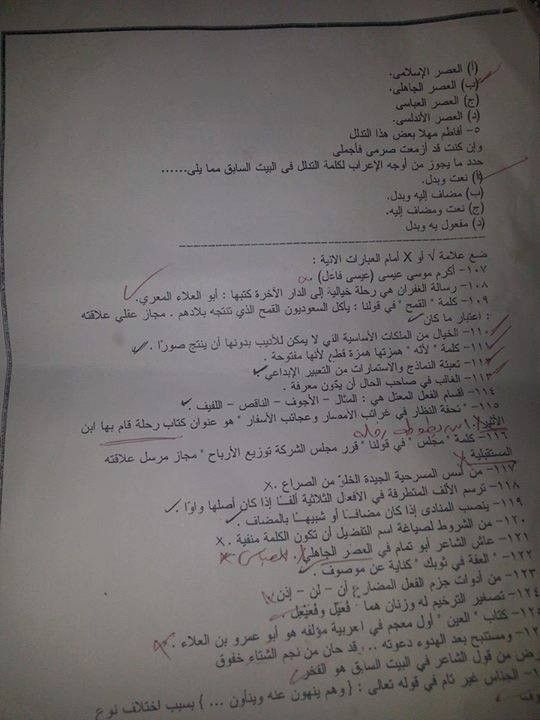 (أ) العصر الإسلامى.
(ب) العصر الجاهلى.
(ج) العصر العباسى
(د) العصر الأندلسى.
٥- أفاطم مهلا بعض هذا التدلل
وإن كنت قد أزمعت صرمى فأجملى
حدد ما يجوز من أوجه الإعراب لكلمة التدلل فى البيت السابق مما يلى......
(أ) نعت وبدل.
(ب) مضاف إليه وبدل.
(ج) نعت ومضاف إليه.
(د) مفعول به وبدل
ضع علامة √ أو X أمام العبارات الاتية :
١٠٧- أكرم موسي عيسى (عيسى فاعل) .
١٠٨- رسالة الغفران هي رحلة خيالية إلى الدار الآخرة كتبها : أبو العلاء المعري.
١٠٩- كلمة " القمح " في قولنا : يأكل السعوديون القمح الذي تنتجه بلادهم . مجاز عقلي علاقته
: اعتبار ما كان
١١٠- الخيال من الملكات الأساسية الذي لا يمكن للأديب بدونها أن ينتج صورًا .
١١١- كلمة " لأنه " همزتها همزة قطع لأنها مفتوحة .
١١٢- تعبئة النماذج والاستمارات من التعبير الإبداعي.
١١٣- الغالب في صاحب الحال أن يكون معرفة .
١١٤- أقسام الفعل المعتل هي : المثال – الأجوف – الناقص – اللفيف .
١١٥- " تحفة النظار في غرائب الأمصار وعجائب الأسفار " هو عنوان كتاب رحلة قام بها ابن
الأثير .
١١٦- كلمة " مجلس " في قولنا " قرر مجلس الشركة توزيع الأرباح " مجاز مرسل علاقته
المستقبلية
١١٧- من أسس المسرحية الجيدة الخلوّ من الصراع .x
١١٨- ترسم الألف المتطرفة في الافعال الثلاثية ألفًا إذا كان أصلها واوًا .
١١٩- ينتصب المنادى إذا كان مضافًا أو شبيهًا بالمضاف .
١٢٠- من الشروط لصياغة اسم التفضيل أن تكون الكلمة منفية . x
١٢١- عاش الشاعر أبو تمام في العصر الجاهلي . (العباسي) x
١٢٢- " العفة في ثوبك " كناية عن موصوف .
١٢٣- من أدوات جزم الفعل المضارع أن – لن – إذن
١٢٤- تصغير الترخيم له وزنان هما فُعَيْل وفُعَيْعِل
كتاب " العين " أول معجم في العربية مؤلفه هو أبو عمرو بن العلاء . x
ومستنبح بعد الهدوء دعوته ... قد حان من نجم الشتاء خفوق
رض من قول الشاعر في البيت السابق هو الفخر
الجناس غير تام في قوله تعالى : { وهم ينهون عنه وينأون ... } بسبب اختلاف نوع